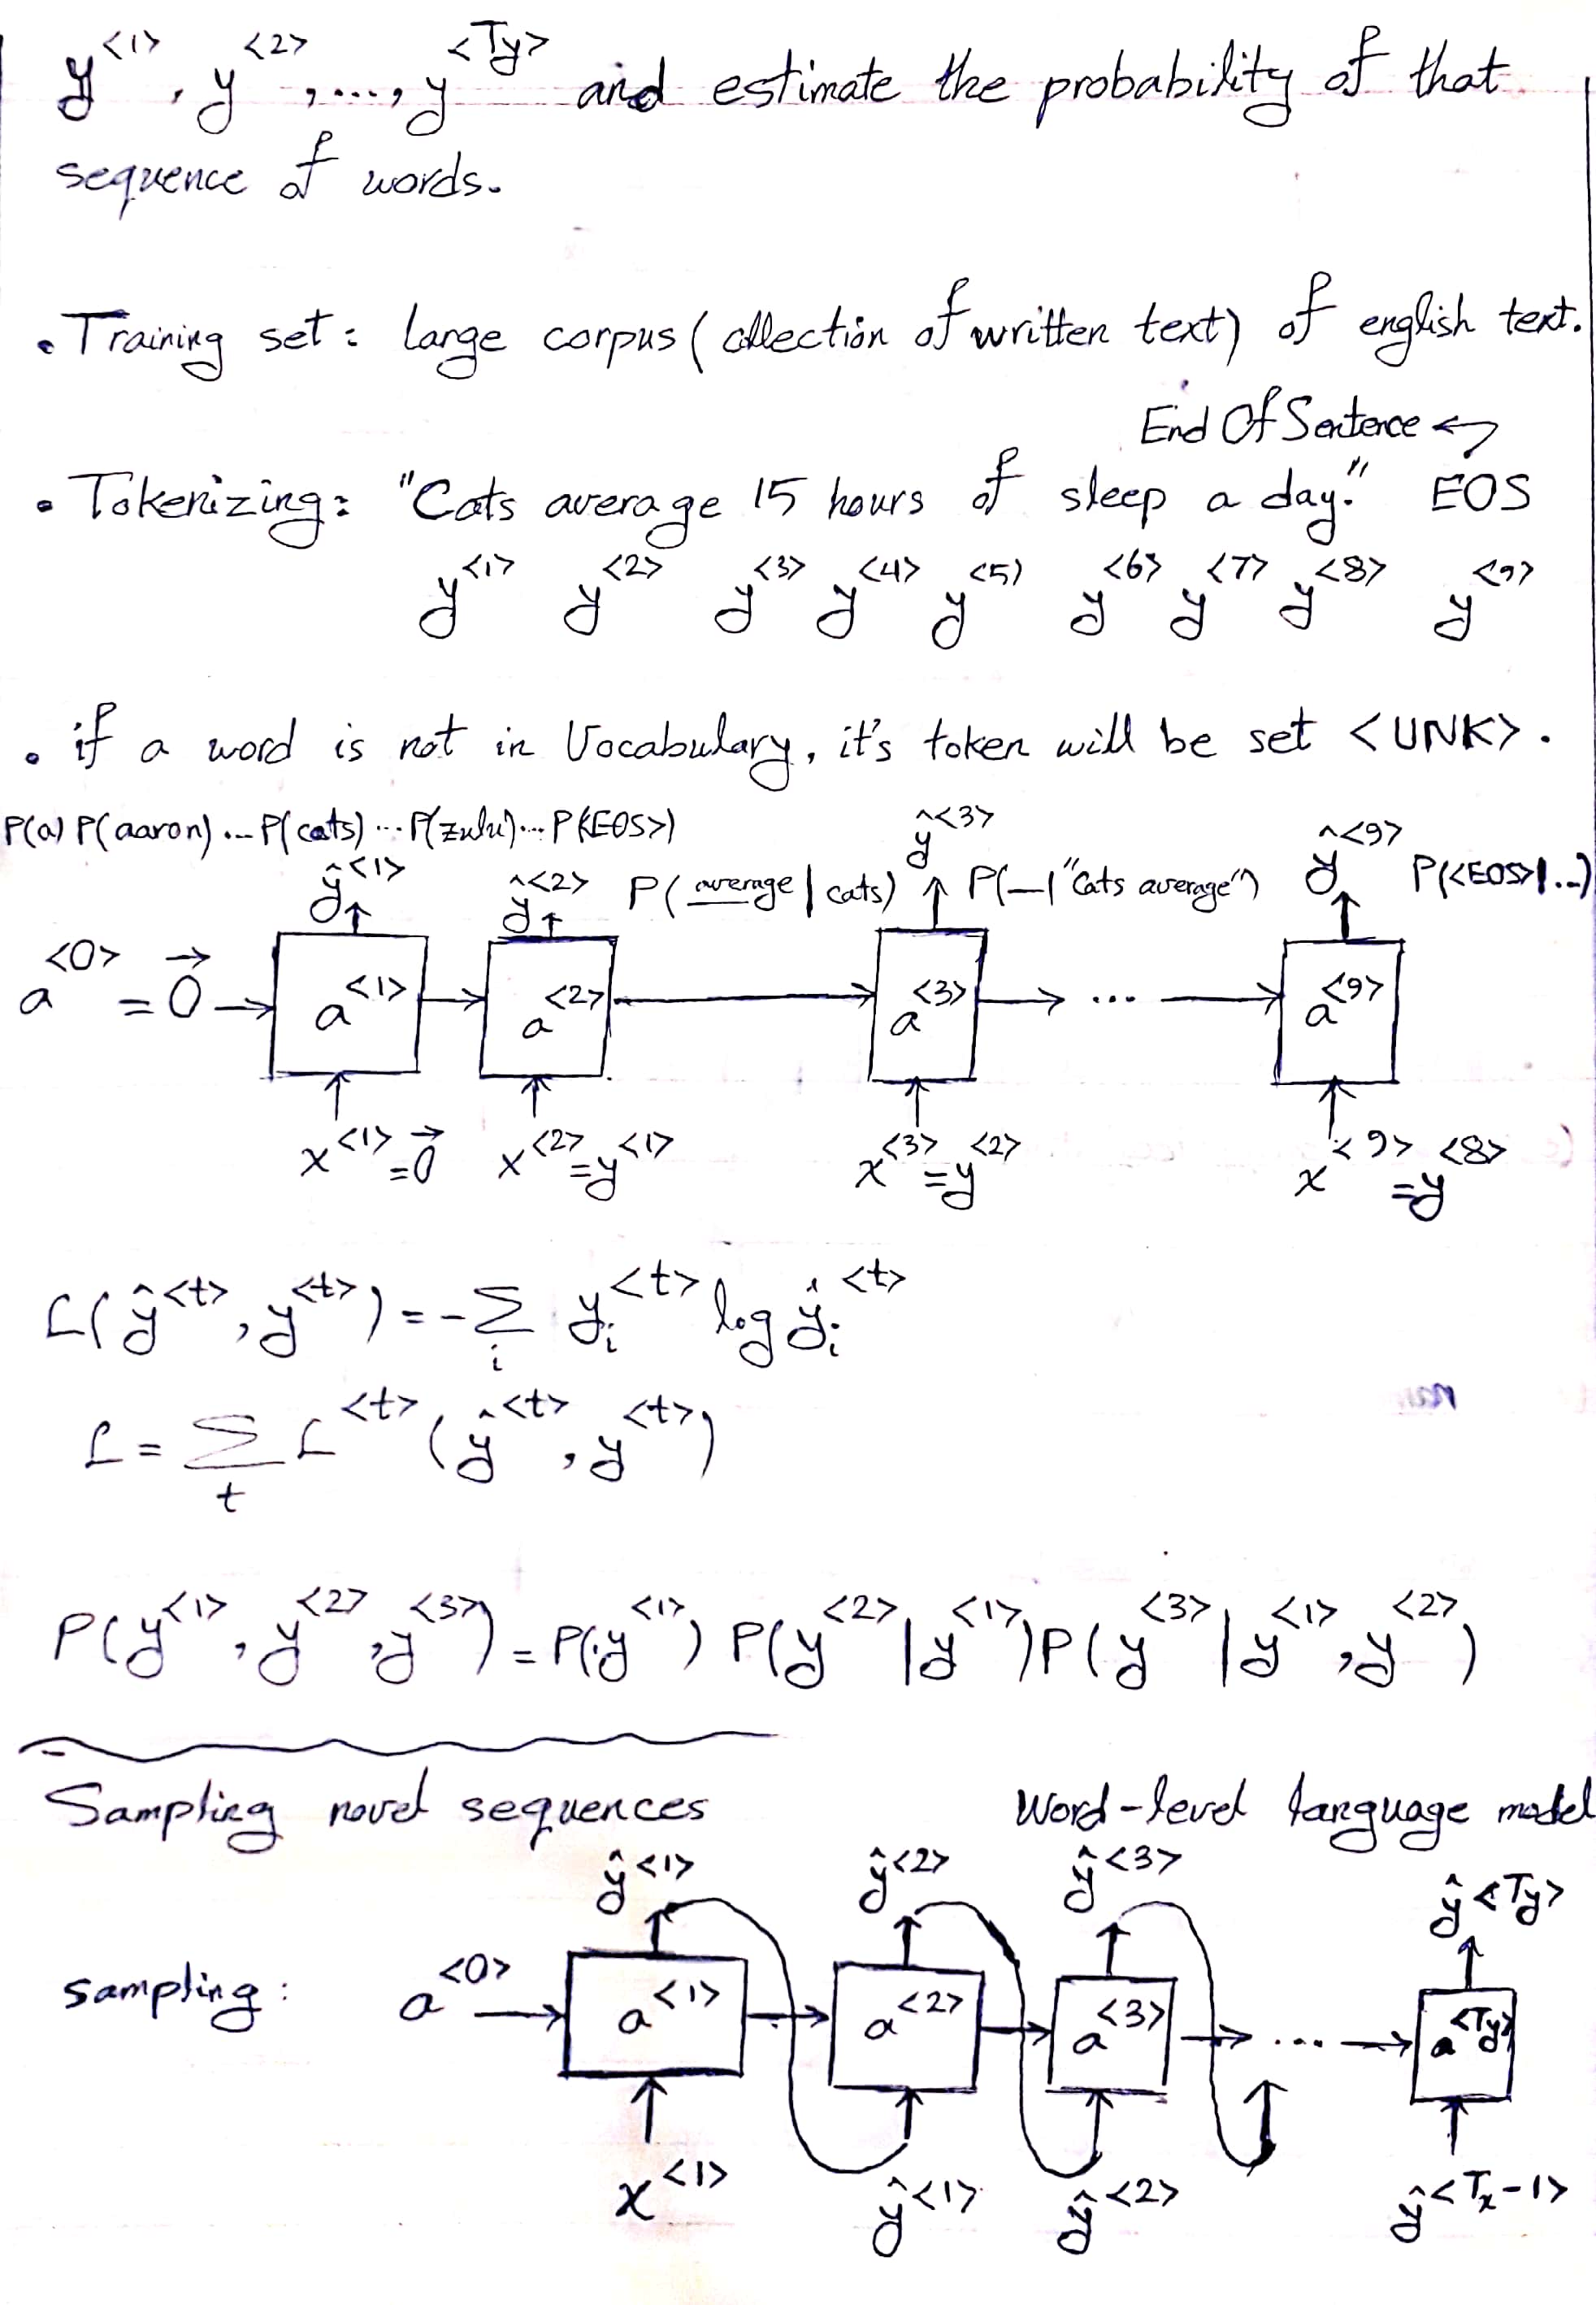 y<1>, y<2>, ..., y<Ty> and estimate the probability of that
sequence of words.
• Training set: large corpus (collection of written text) of english text.
End Of Sentence ↩
• Tokenizing: "Cats average 15 hours of sleep a day." EOS
y<1> y<2> y<3> y<4> y<5> y<6> y<7> y<8> y<9>
• if a word is not in Vocabulary, it's token will be set <UNK>.
P(a) P(aaron) ... P(cats) ... P(zulu) ... P(<EOS>)
ŷ<1> ŷ<2> P(average | cats) ŷ<3> P(— | "Cats average") ŷ<9> P(<EOS>|...)
a<0> = 0⃗ → a<1> → a<2> → a<3> → ... → a<9>
x<1> = 0⃗ x<2> = y<1> x<3> = y<2> x<9> = y<8>
L(ŷ<t>, y<t>) = - Σi yi<t> log ŷi<t>
L = Σt L<t>(ŷ<t>, y<t>)
P(y<1>, y<2>, y<3>) = P(y<1>) P(y<2> | y<1>) P(y<3> | y<1>, y<2>)
Sampling novel sequences Word-level language model
ŷ<1> ŷ<2> ŷ<3> ŷ<Ty>
sampling: a<0> → a<1> → a<2> → a<3> → ... → a<Ty>
x<1> ŷ<1> ŷ<2> ŷ<Tx-1>